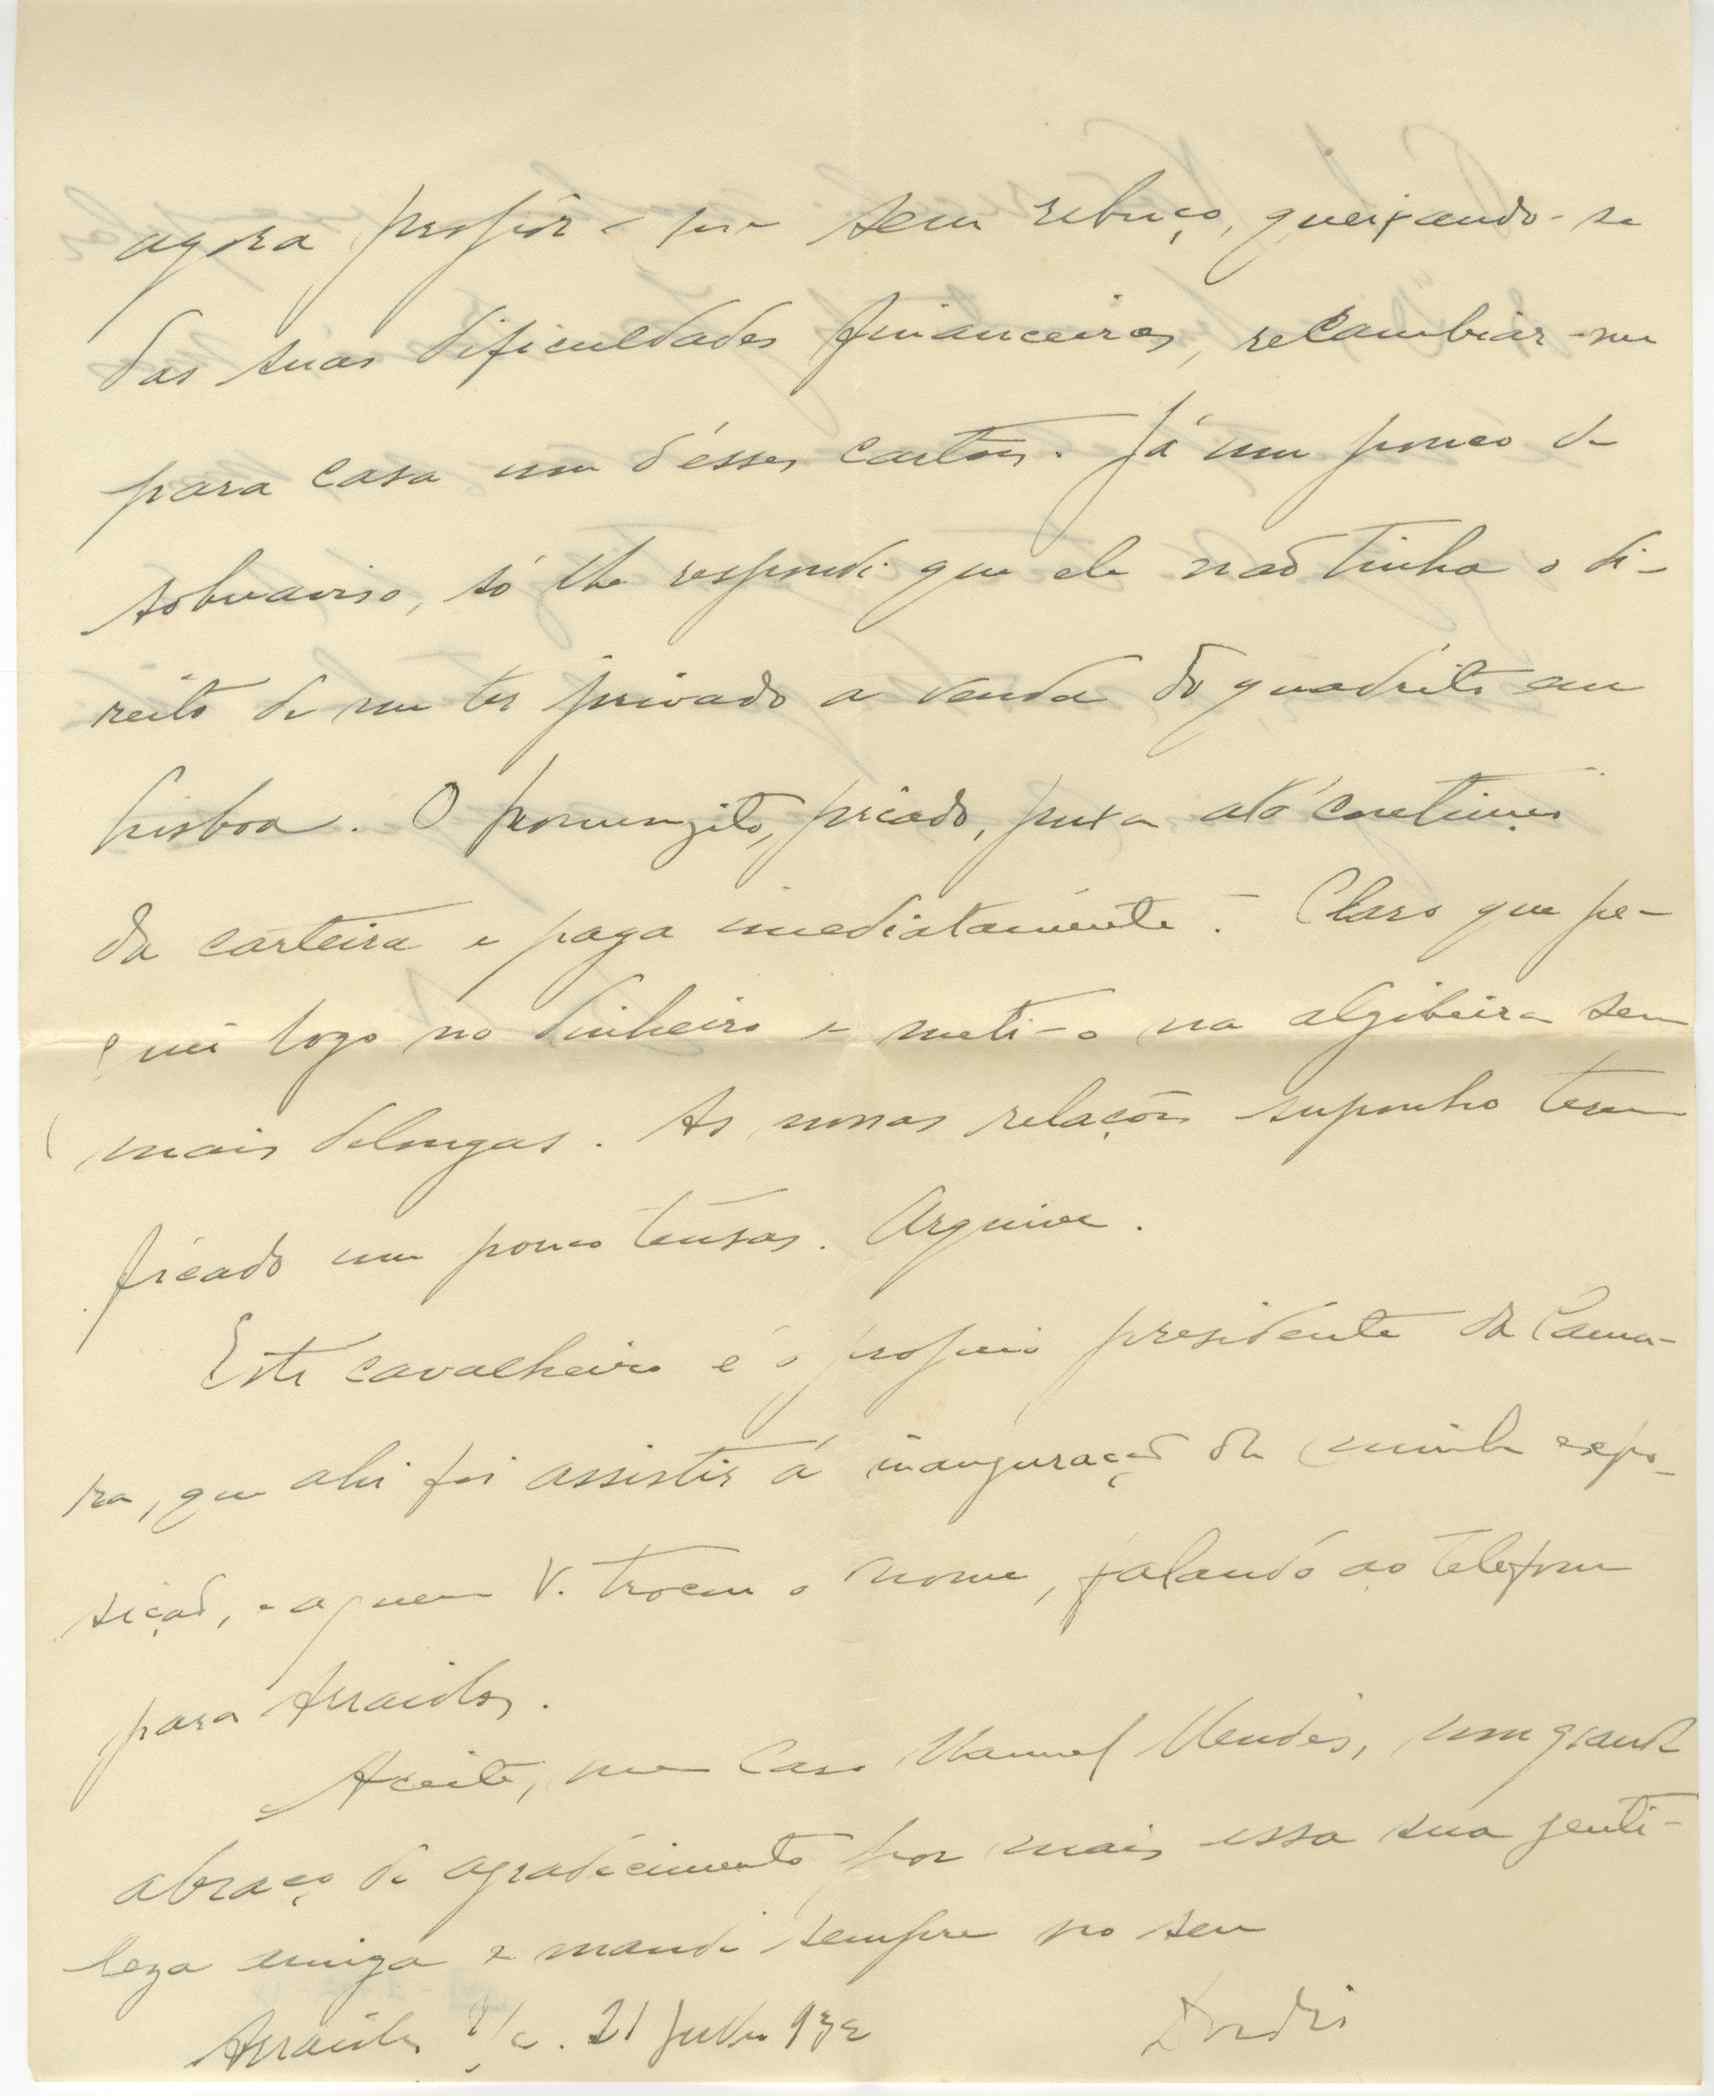 agora propôr-me sem rebuço, queixando-se
das suas dificuldades financeiras, recambiar-me
para casa um d'esses cartões. Já um pouco de
sobreaviso, só lhe respondi que ele não tinha o di-
reito de me ter privado a venda do quadrito em
Lisboa. O homenzito, picado, puxa
da carteira e paga imediatamente. Claro que pe-
guei logo no dinheiro e meti-o na algibeira sem
mais delongas. As nossas relações suponho terem
ficado um pouco tensas. Arquive.
Este cavalheiro é o proprio presidente da Cama-
ra, que ahi foi assistir á inauguração da minha expo-
sição, e a quem V. trocou o nome, falando ao telefone
para Arraiolos.
Aceite, meu Caro Manuel Mendes, um grande
abraço de agradecimento por mais essa sua genti-
leza amiga e mande sempre no seu
Arraiolos 21 Julho 932